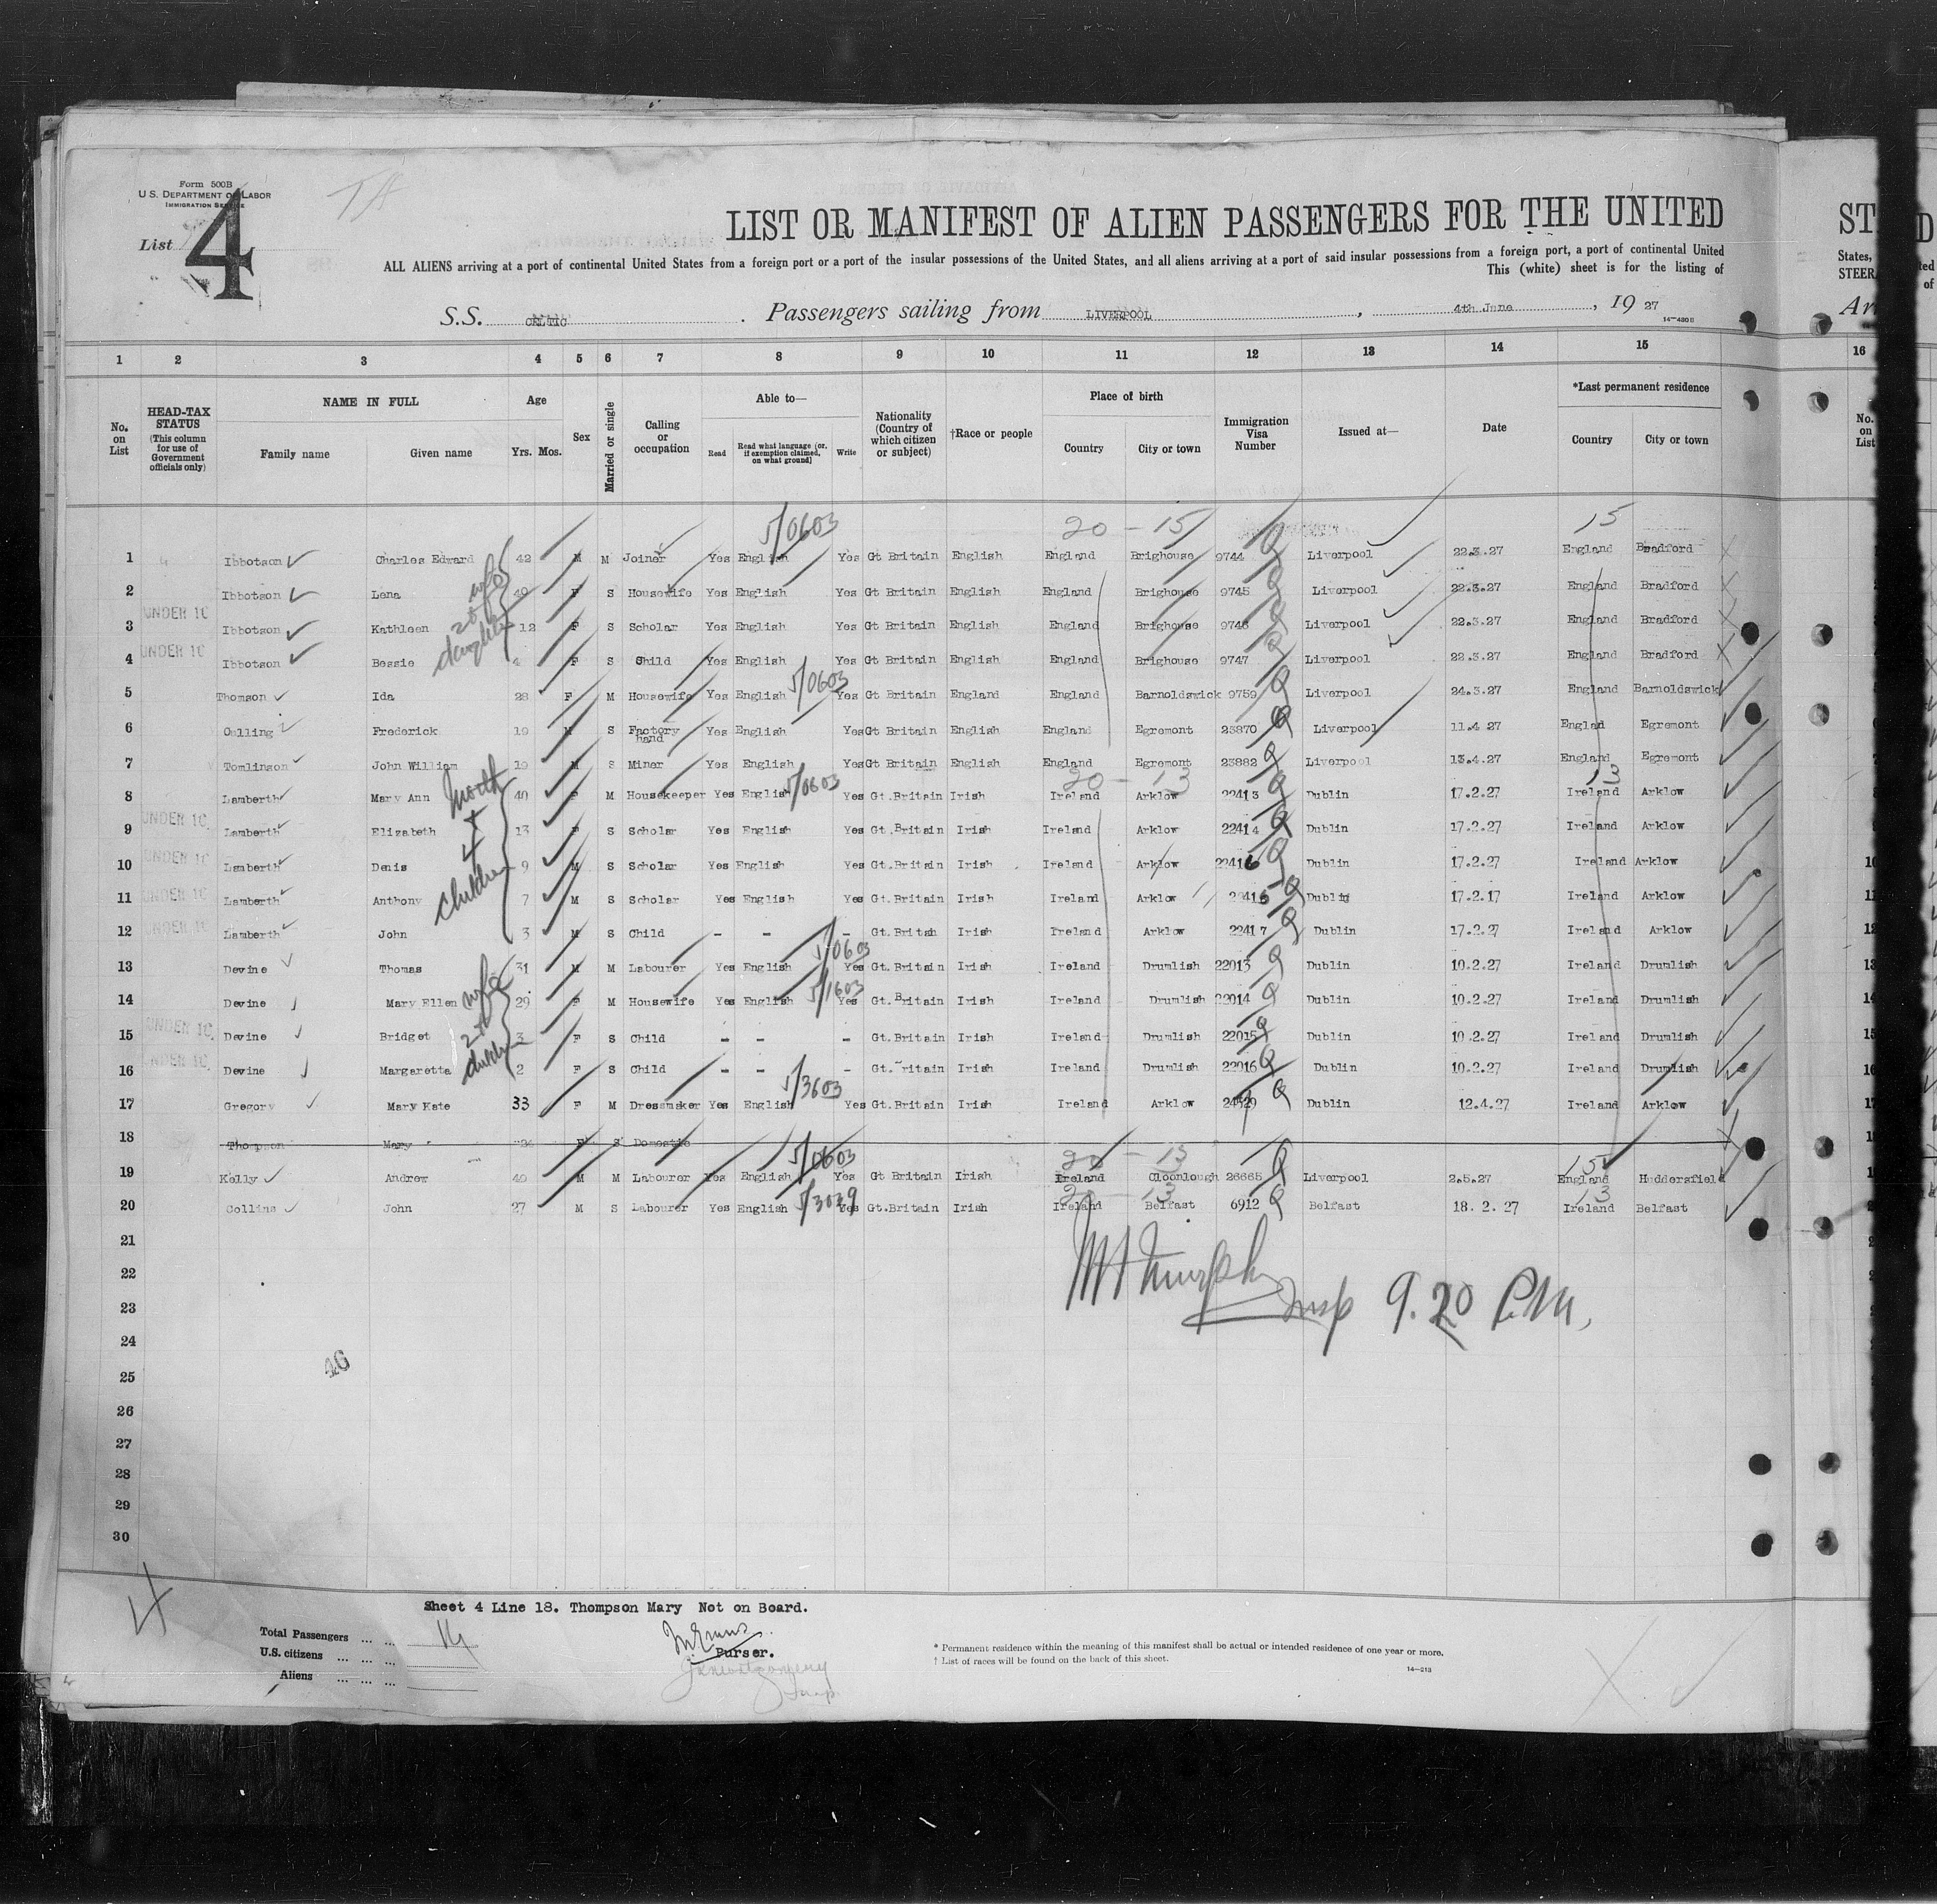 Form 500B
U.S. DEPARTMENT OF LABOR
IMMIGRATION SERVICE
List 4
LIST OR MANIFEST OF ALIEN PASSENGERS FOR THE UNITED
ALL ALIENS arriving at a port of continental United States from a foreign port or a port of the insular possessions of the United States, and all aliens arriving at a port of said insular possessions from a foreign port, a port of continental United
This (white) sheet is for the listing of
S.S. CELTIC. Passengers sailing from LIVERPOOL, 4th June, 19 27
14-430 B
1 2 3 4 5 6 7 8 9 10 11 12 13 14 15 16
No. on List HEAD-TAX STATUS (This column for use of Government officials only) NAME IN FULL Family name Given name Age Yrs. Mos. Sex Married or single Calling or occupation Able to— Read Read what language [or, if exemption claimed, on what ground] Write Nationality (Country of which citizen or subject) †Race or people Place of birth Country City or town Immigration Visa Number Issued at— Date *Last permanent residence Country City or town No. on List
5/0603 20 - 15 15
1 Ibbotson Charles Edward 42 M M Joiner Yes English Yes Gt Britain English England Brighouse 9744 Liverpool 22.3.27 England Bradford
2 Ibbotson Lena wife 40 F S Housewife Yes English Yes Gt Britain English England Brighouse 9745 Liverpool 22.3.27 England Bradford
UNDER 16
3 Ibbotson Kathleen 12 F S Scholar Yes English Yes Gt Britain English England Brighouse 9746 Liverpool 22.3.27 England Bradford
UNDER 16 daughters
4 Ibbotson Bessie 4 F S Child Yes English Yes Gt Britain English England Brighouse 9747 Liverpool 22.3.27 England Bradford
5/0603
5 Thomson Ida 28 F M Housewife Yes English Yes Gt Britain England England Barnoldswick 9759 Liverpool 24.3.27 England Barnoldswick
6 Frederick 19 M S Factory hand Yes English Yes Gt Britain English England Egremont 23870 Liverpool 11.4 27 Englad Egremont
7 Tomlinson John William 19 M S Miner Yes English Yes Gt Britain English England Egremont 23882 Liverpool 13.4.27 England Egremont
5/0603 20 - 13 13
8 Lamberth Mary Ann Moth 40 F M Housekeeper Yes English Yes Gt.Britain Irish Ireland Arklow 22413 Dublin 17.2.27 Ireland Arklow
UNDER 16 + 4 children
9 Lamberth Elizabeth 13 F S Scholar Yes English Yes Gt.Britain Irish Ireland Arklow 22414 Dublin 17.2.27 Ireland Arklow
UNDER 16
10 Lamberth Denis 9 M S Scholar Yes English Yes Gt.Britain Irish Ireland Arklow 22416 Dublin 17.2.27 Ireland Arklow
UNDER 16
11 Lamberth Anthony 7 M S Scholar Yes English Yes Gt.Britain Irish Ireland Arklow 22415 Dublin 17.2.17 Ireland Arklow
UNDER 16
12 Lamberth John 3 M S Child - - - Gt.Britsh Irish Ireland Arklow 22417 Dublin 17.2.27 Ireland Arklow
5/0603
13 Devine Thomas 31 M M Labourer Yes English Yes Gt.Britain Irish Ireland Drumlish 22013 Dublin 10.2.27 Ireland Drumlish
5/1603
14 Devine Mary Ellen wife 29 F M Housewife Yes English Yes Gt.Britain Irish Ireland Drumlish 22014 Dublin 10.2.27 Ireland Drumlish
UNDER 16
15 Devine Bridget 3 F S Child - - - Gt.Britain Irish Ireland Drumlish 22015 Dublin 10.2.27 Ireland Drumlish
UNDER 16
16 Devine Margaretta 2 F S Child - - - Gt.Britain Irish Ireland Drumlish 22016 Dublin 10.2.27 Ireland Drumlish
5/3603
17 Gregory Mary Kate 33 F M Dressmaker Yes English Yes Gt.Britain Irish Ireland Arklow 24529 Dublin 12.4.27 Ireland Arklow
18 Thompson Mary F S Domestic
5/0603 20 - 13 15
19 Kelly Andrew 40 M M Labourer Yes English Yes Gt Britain Irish Ireland Cloonlough 26665 Liverpool 2.5.27 England Huddersfield
5/3029 20 - 13 13
20 Collins John 27 M S Labourer Yes English Yes Gt.Britain Irish Ireland Belfast 6912 Belfast 18. 2. 27 Ireland Belfast
21
22
Murphy Insp 9.20 P.M.
23
24
25
26
27
28
29
30
Sheet 4 Line 18. Thompson Mary Not on Board.
Total Passengers ... ... 19
U.S. citizens ... ... ...
Aliens ... ... ...
Purser.
* Permanent residence within the meaning of this manifest shall be actual or intended residence of one year or more.
† List of races will be found on the back of this sheet.
14-213